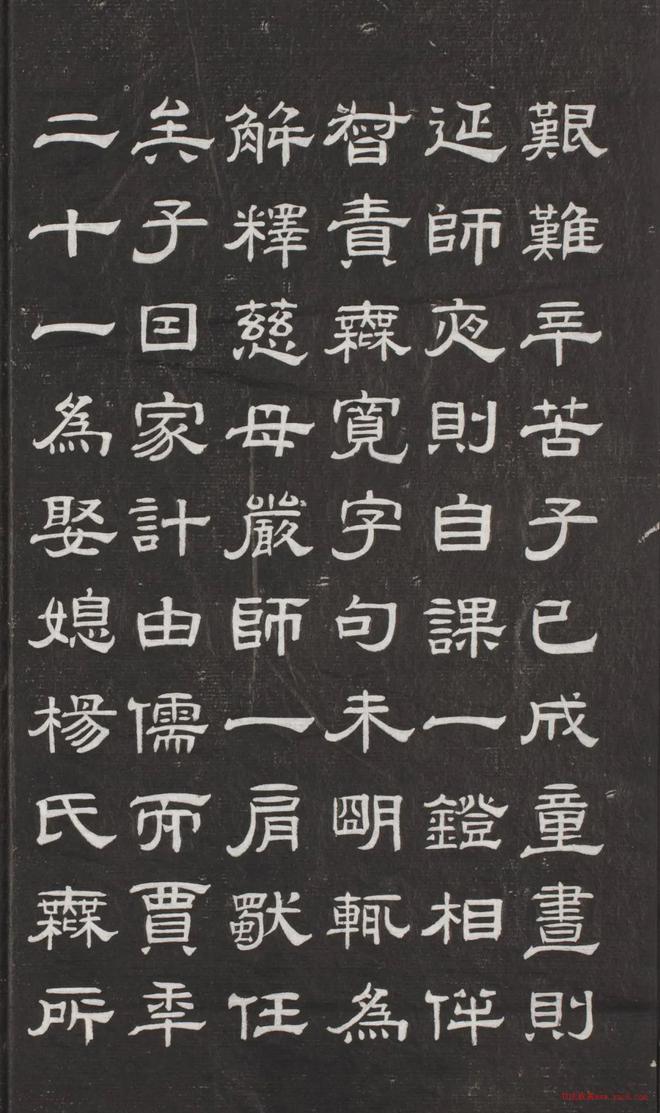 艱難辛苦子已成童晝則
延師夜則自課一鐙相伴
督責無寬字句未明輒為
解釋慈母嚴師一肩獨任
矣子因家計由儒而賈年
二十一為娶媳楊氏無所